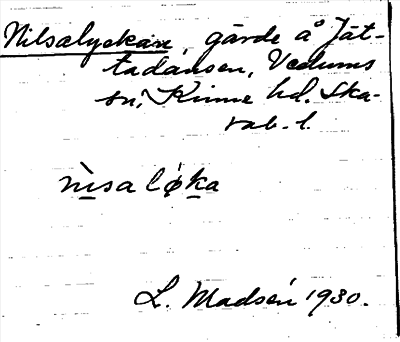 Nilsalyckan, gärde å Jät-
tadansen, Vedums
sn, Kinne hd. Ska-
rab. l.
nìsa lǿka
L. Madsén 1930.